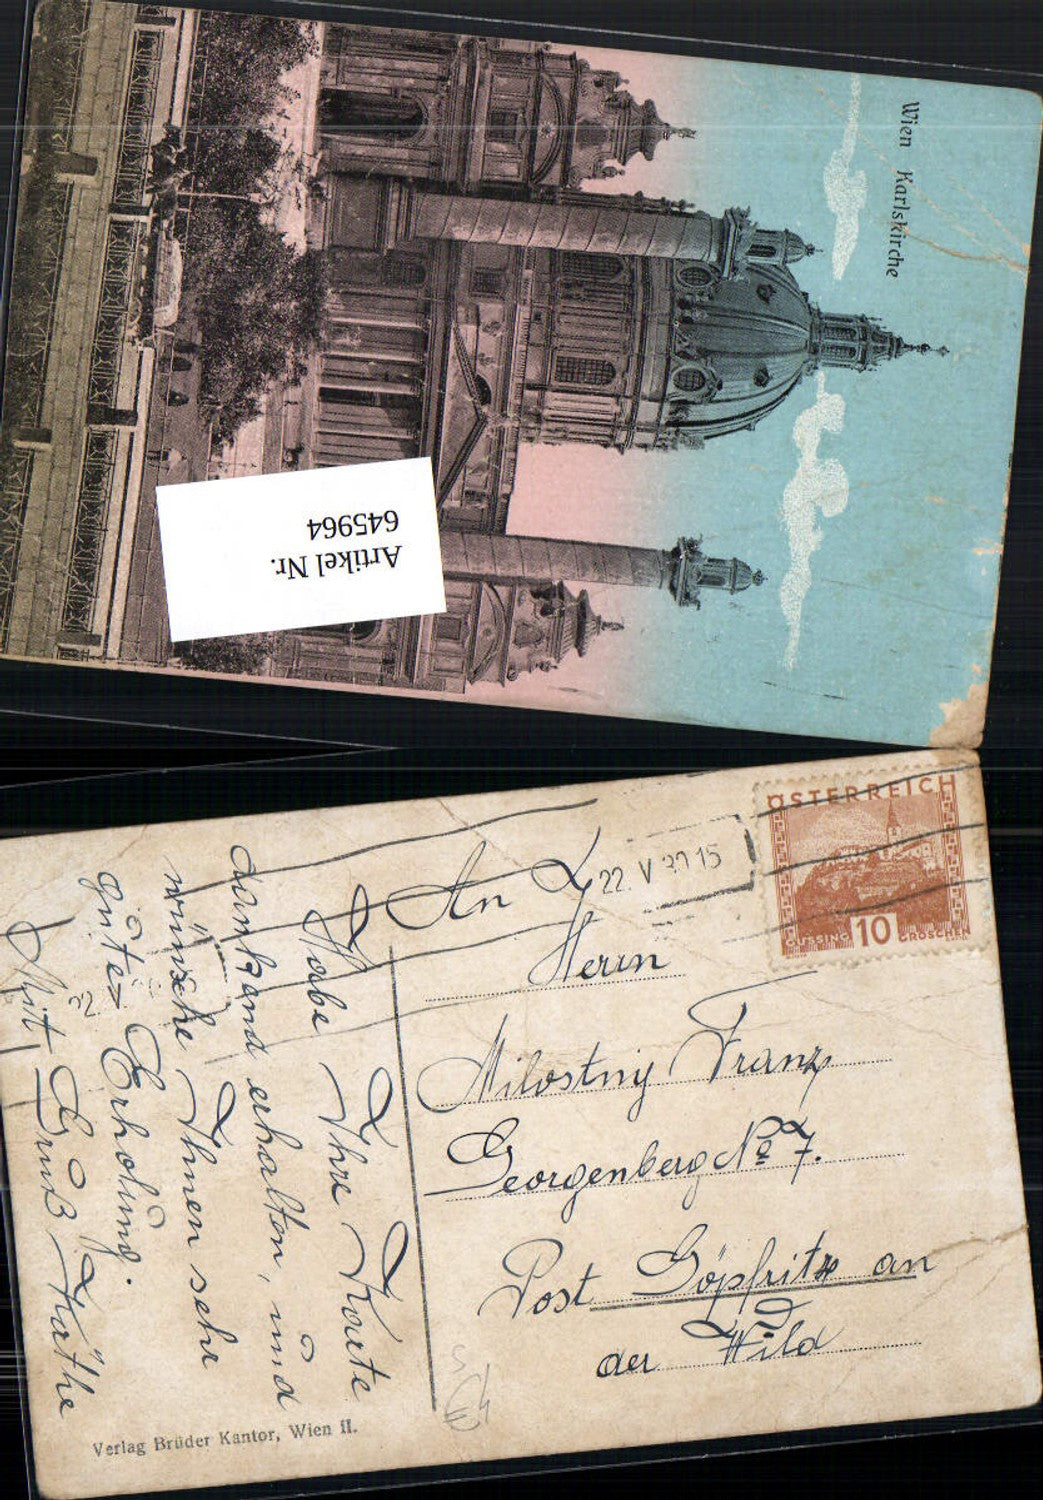 Wien Karlskirche
Artikel Nr.
645964
ÖSTERREICH
GÜSSING 10 GROSCHEN
22. V 30 15
An
Herrn
Milostnij Franz
Georgenberg № 7.
Post Göpfritz an
der Wild
Habe Ihre Karte
dankend erhalten, und
wünsche Ihnen sehr
gutes Erholung.
Mit Gruß Käthe
Verlag Brüder Kantor, Wien II.